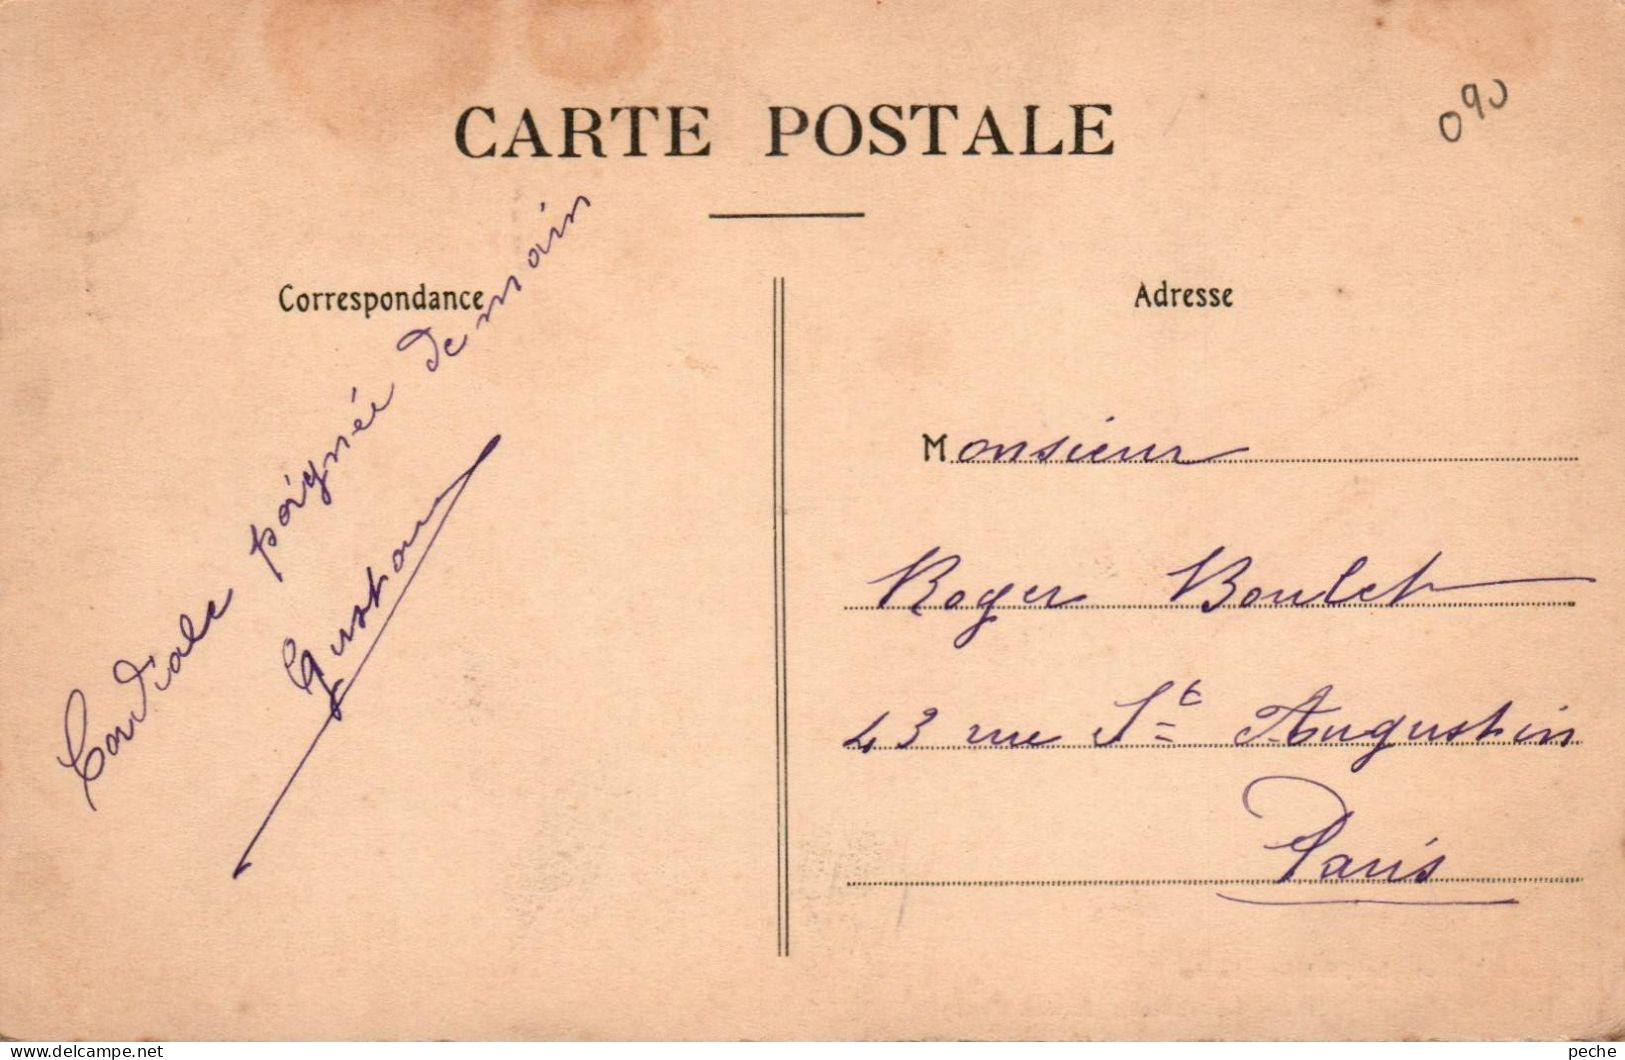 CARTE POSTALE
090
Correspondance
Adresse
Cordiale poignée de main
Monsieur
Roger Boulet
43 rue St Augustin
Paris
www.delcampe.net
peche